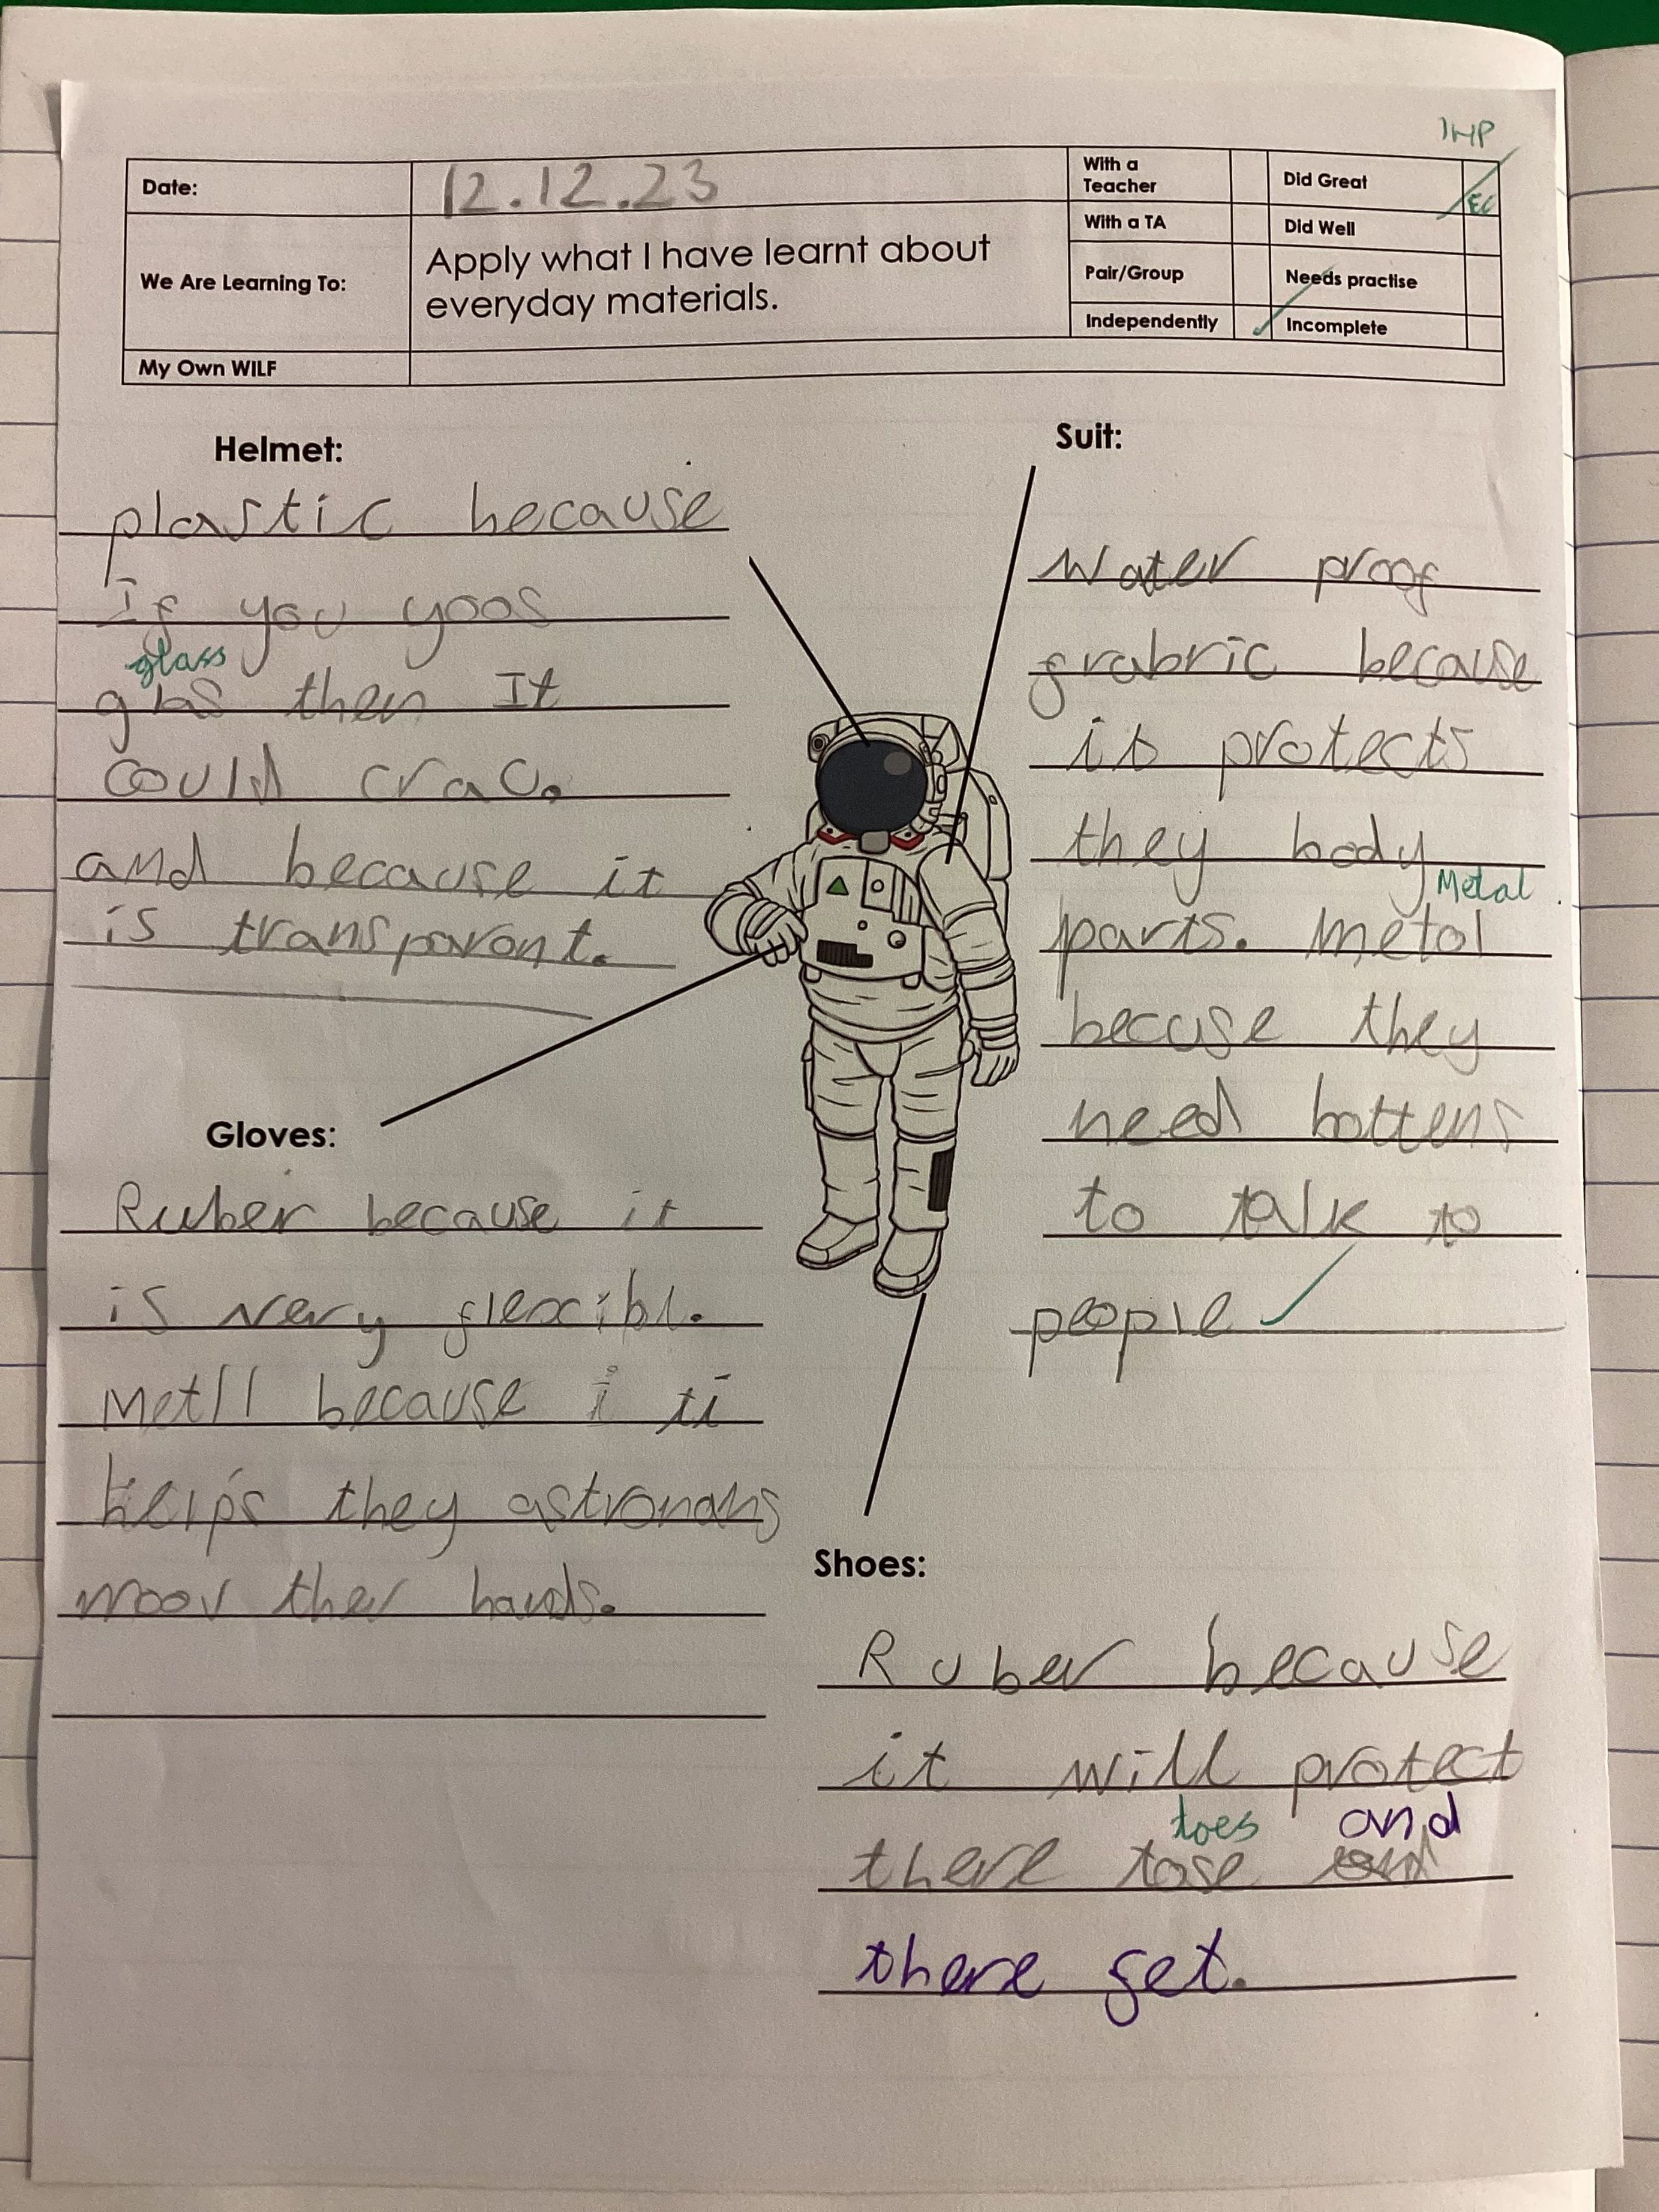 1HP
Date:
12.12.23
With a Teacher
Did Great
EC
With a TA
Did Well
We Are Learning To:
Apply what I have learnt about
everyday materials.
Pair/Group
Needs practise
Independently
Incomplete
My Own WILF
Helmet:
plastic because
If you yoos
glass
glas then It
could crac.
and because it
is transparont.
Suit:
Water proof
frabric because
is protects
they body
Metal
parts. metal
becuse they
need bottens
to talk to
people
Gloves:
Ruber because it
is very flexcibl.
Metll because i ti
helps they astronans
moov ther hands.
Shoes:
Ruber because
it will protect
toes and
there tose
there fet.